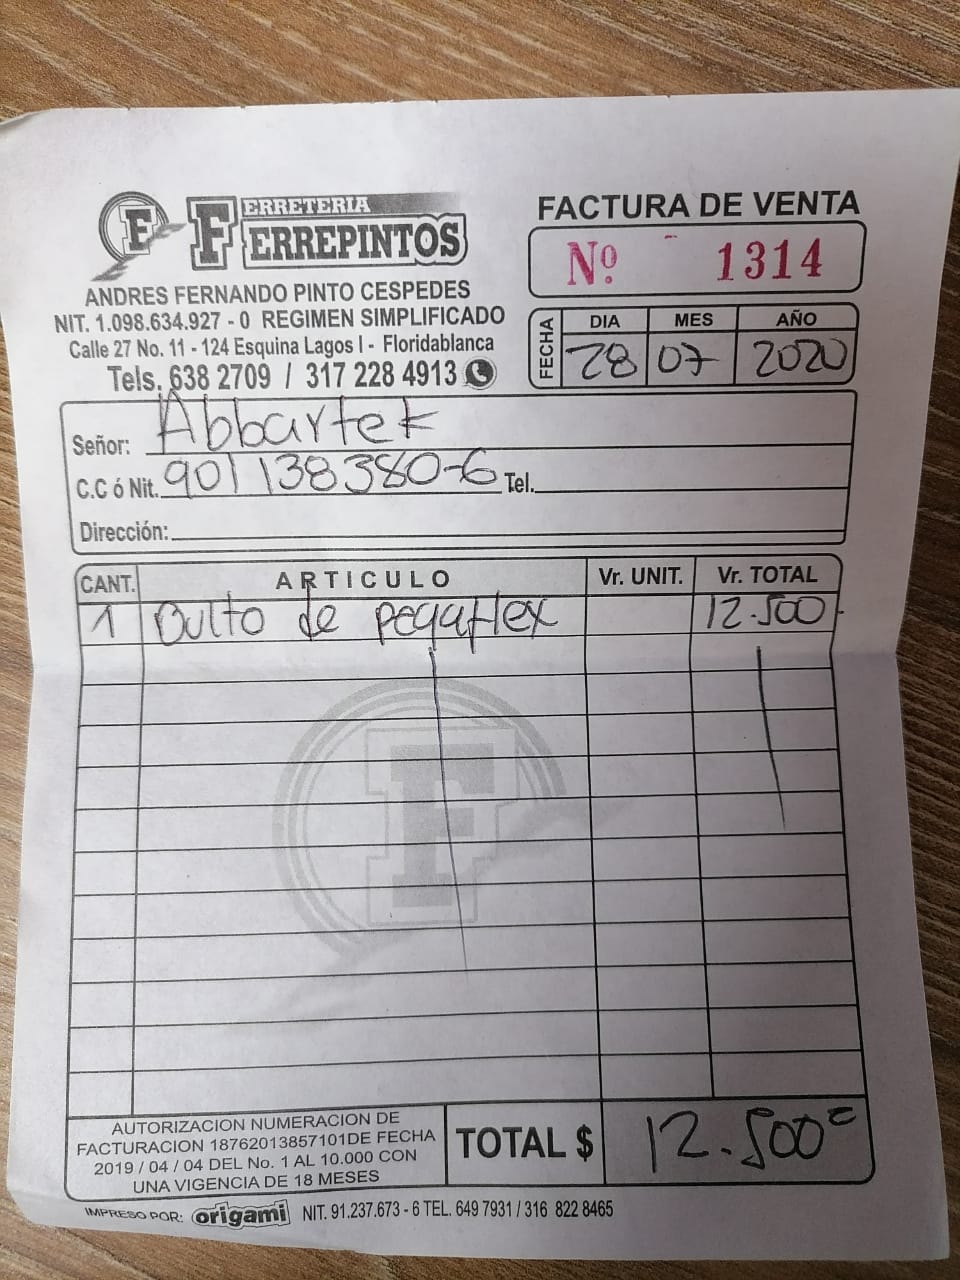 FERRETERIA
FERREPINTOS
ANDRES FERNANDO PINTO CESPEDES
NIT. 1.098.634.927 - 0 REGIMEN SIMPLIFICADO
Calle 27 No. 11 - 124 Esquina Lagos I - Floridablanca
Tels. 638 2709 / 317 228 4913
FACTURA DE VENTA
Nº 1314
FECHA
DIA MES AÑO
28 07 2020
Señor: Abbartek
C.C ó Nit. 901138380-6 Tel.
Dirección:
CANT. ARTICULO Vr. UNIT. Vr. TOTAL
1 Bulto de pegaflex 12.500
AUTORIZACION NUMERACION DE
FACTURACION 18762013857101DE FECHA
2019 / 04 / 04 DEL No. 1 AL 10.000 CON
UNA VIGENCIA DE 18 MESES
TOTAL $ 12.500
IMPRESO POR: origami NIT. 91.237.673 - 6 TEL. 649 7931 / 316 822 8465